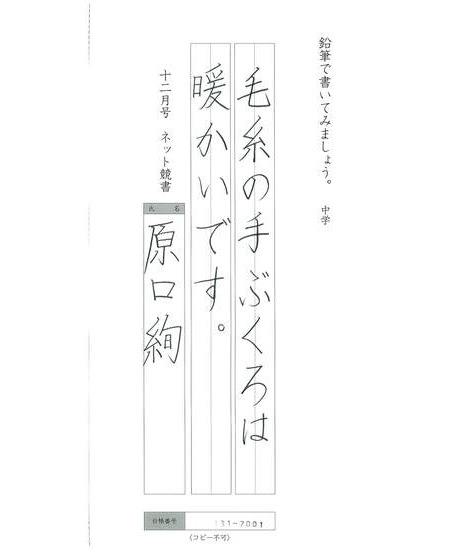 鉛筆で書いてみましょう。 中学
毛糸の手ぶくろは
暖かいです。
十二月号 ネット競書
氏 名
原口絢
合格番号 131-7001
(コピー不可)